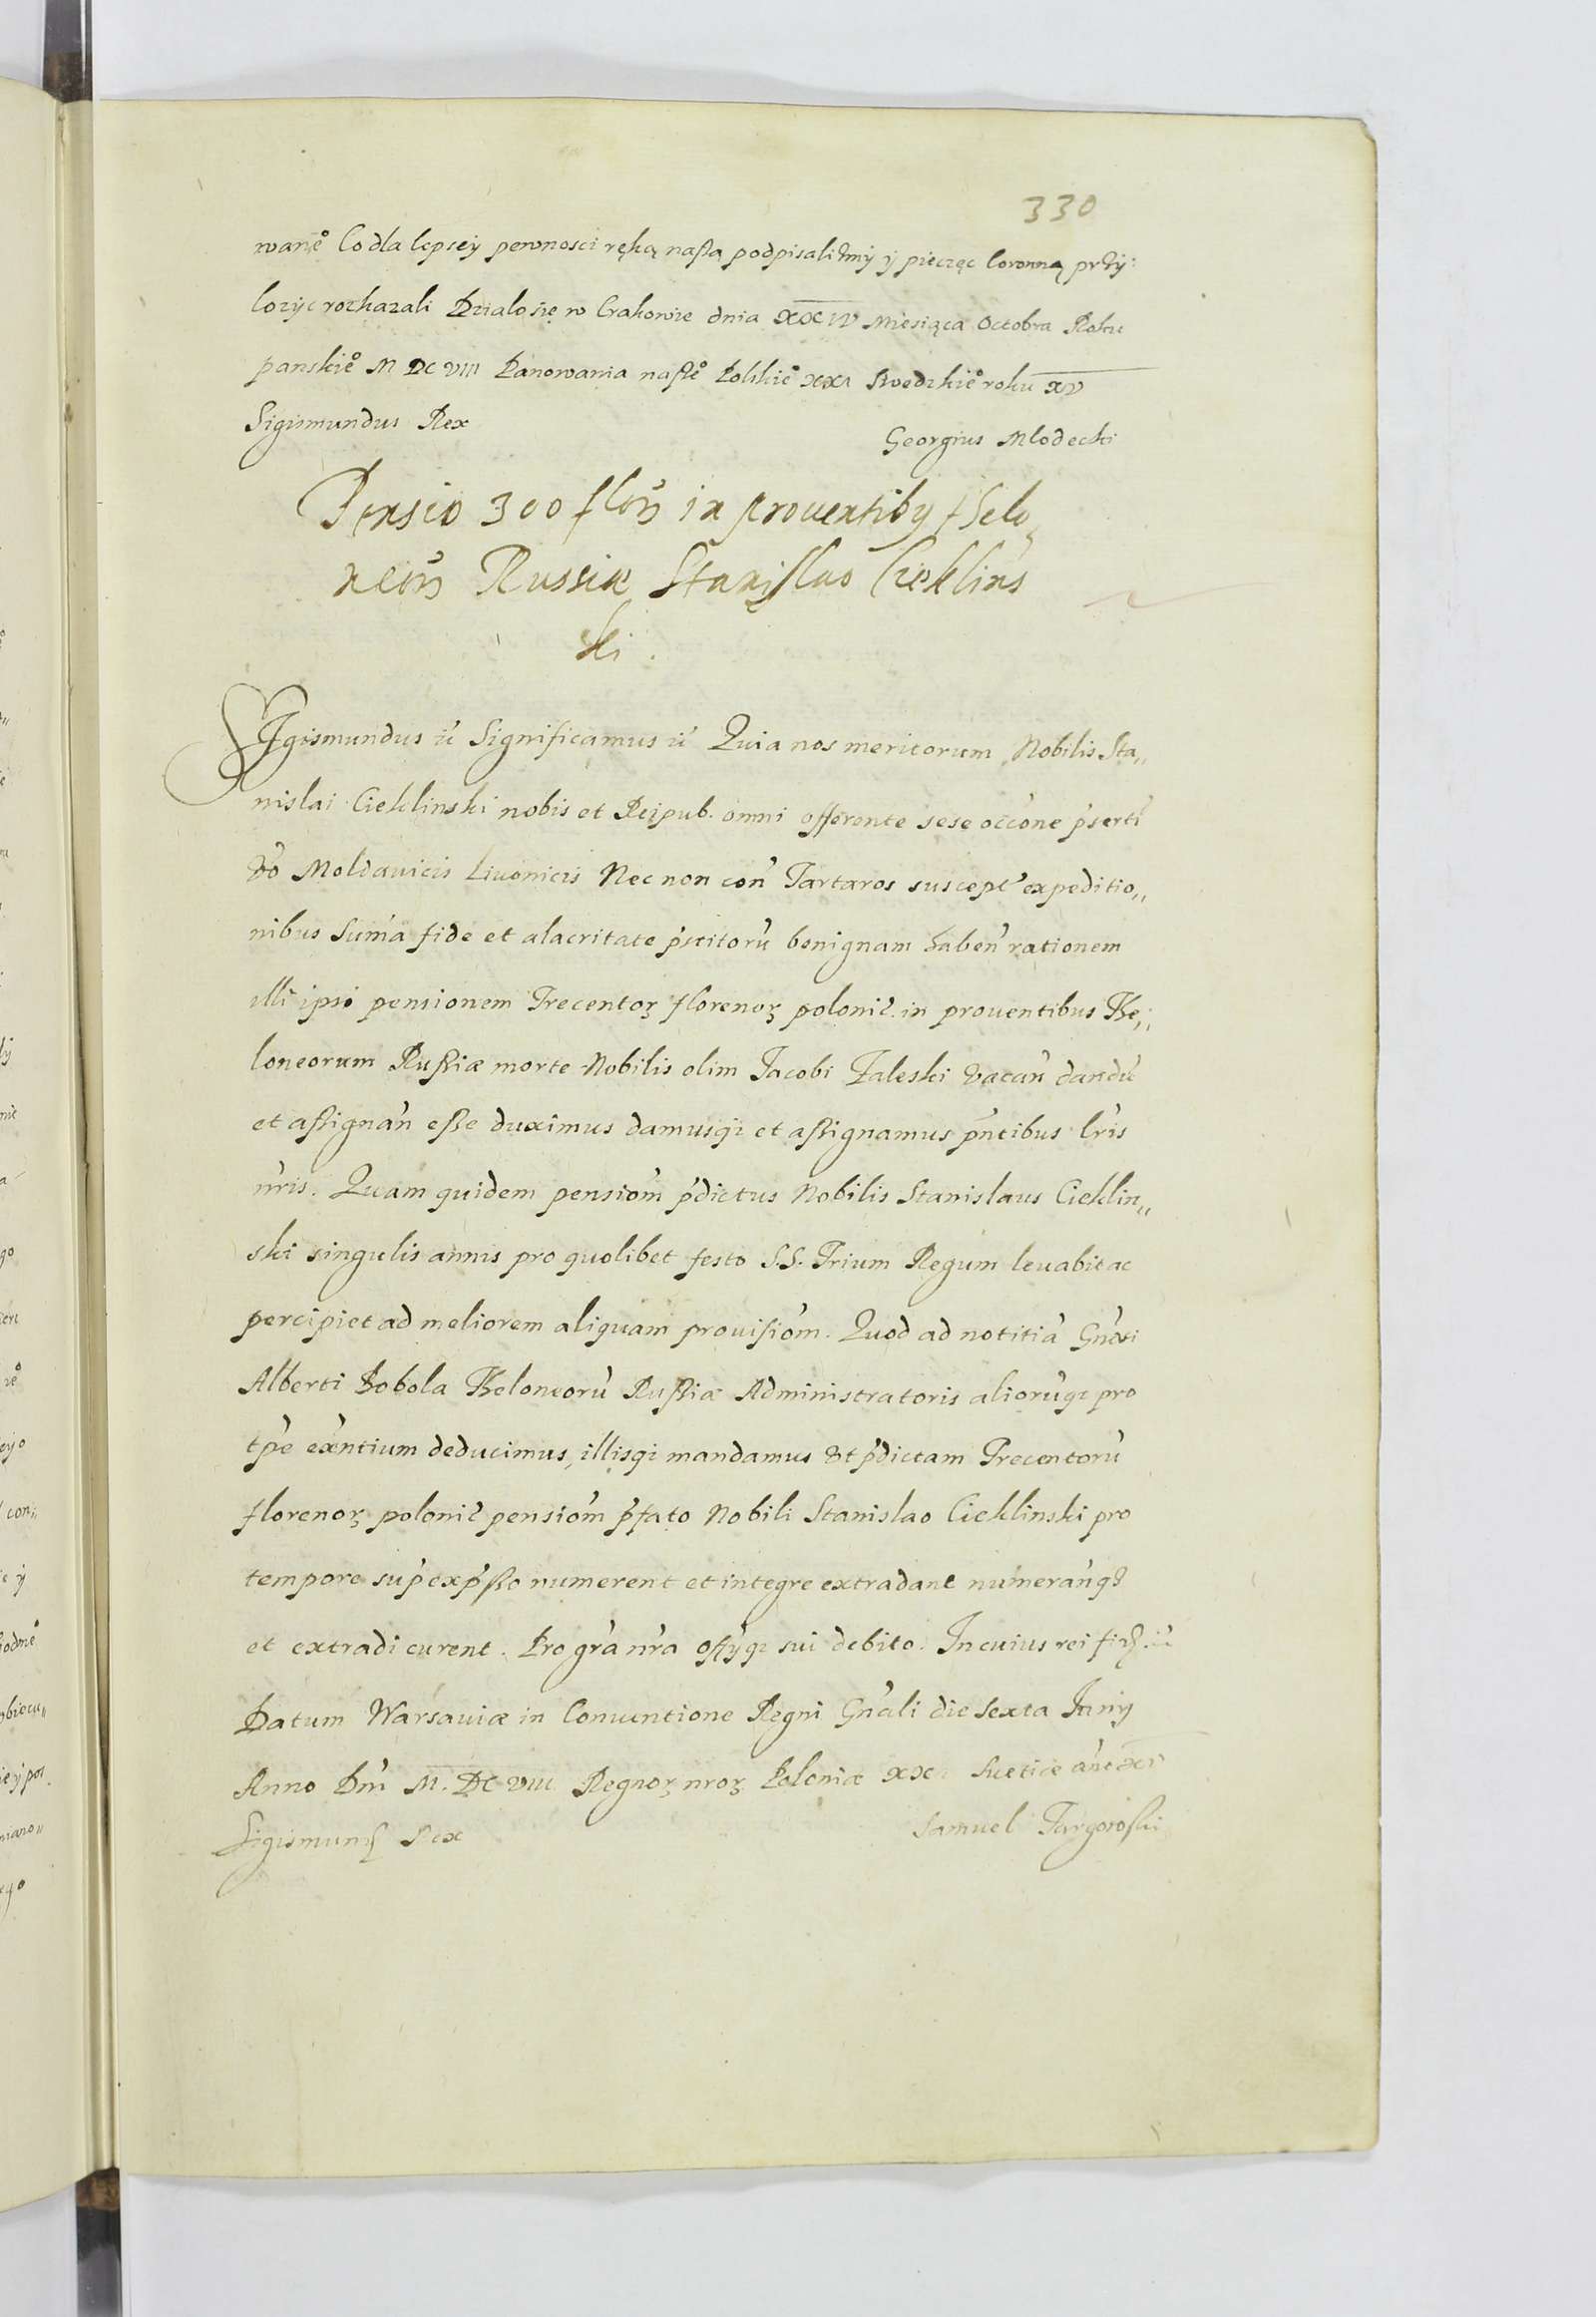 330
wane̊ Co dla lepsey pewnosci ręką naßą podpisalismy y pieczęc Coronną przy:
lozyc rozkazali Dzialo się w Crakowie dnia XXIV Miesiąca Octobra Roku
panskie̊ M DC VIII Panowania naße̊ Polskie̊ XXI Swedzkie̊ roku XV
Sigismundus Rex
Georgius Mlodecki
Pensio 300 flor̃ in prouentibꝰ thelo„
neor̃ Russiæ Stanislao Cieklins
ki.
SIgismundus ic̃ Significamus ic̃ Quia nos meritorum Nobilis Sta„
nislai Cieklinski nobis et Reipub. omni offerente sese occ̃one p̃serti
v̊o Moldauicis Liuonicis Nec non con̄ Tartaros suscept' expeditio„
nibus sum̃a fide et alacritate p̃stitorũ benignam haben̄ rationem
illi ipsi pensionem Trecentoꝝ florenoꝝ poloni͛. in prouentibus The„
loneorum Rußiæ morte Nobilis olim Jacobi Zaleski vacan̄ dandũ
et aßignan̄ eße duximus damusqꝫ et aßignamus pñtibus lr̃is
nr̃is. Quam quidem pension̄m p̃dictus Nobilis Stanislaus Cieklin„
ski singulis annis pro quolibet festo S.S. Trium Regum leuabit ac
percipiet ad meliorem aliquam prouision̄m. Quod ad notitiã Gñosi
Alberti Bobola Theloneorũ Rußiæ Administratoris aliorũqꝫ pro
tp̃e exñtium deducimus, illisqꝫ mandamus vt p̃dictam Trecentorũ
florenoꝝ poloni͛ pension̄m p̃fato Nobili Stanislao Cieklinski pro
tempore sup̃ exp̃ßo numerent et integre extradant numerariqꝫ
et extradi curent. Pro gr̃a nr̃a offyqꝫ sui debito. In cuius rei fid̃ ic̃
Datum Warsauiæ in Conuentione Regni Gñali die sexta Juny
Anno Dn̄i M. DC VIII Regnoꝝ nr̃oꝝ Poloniæ XXI Suetiæ
Sigismund̃ Rex
Samuel Targowski